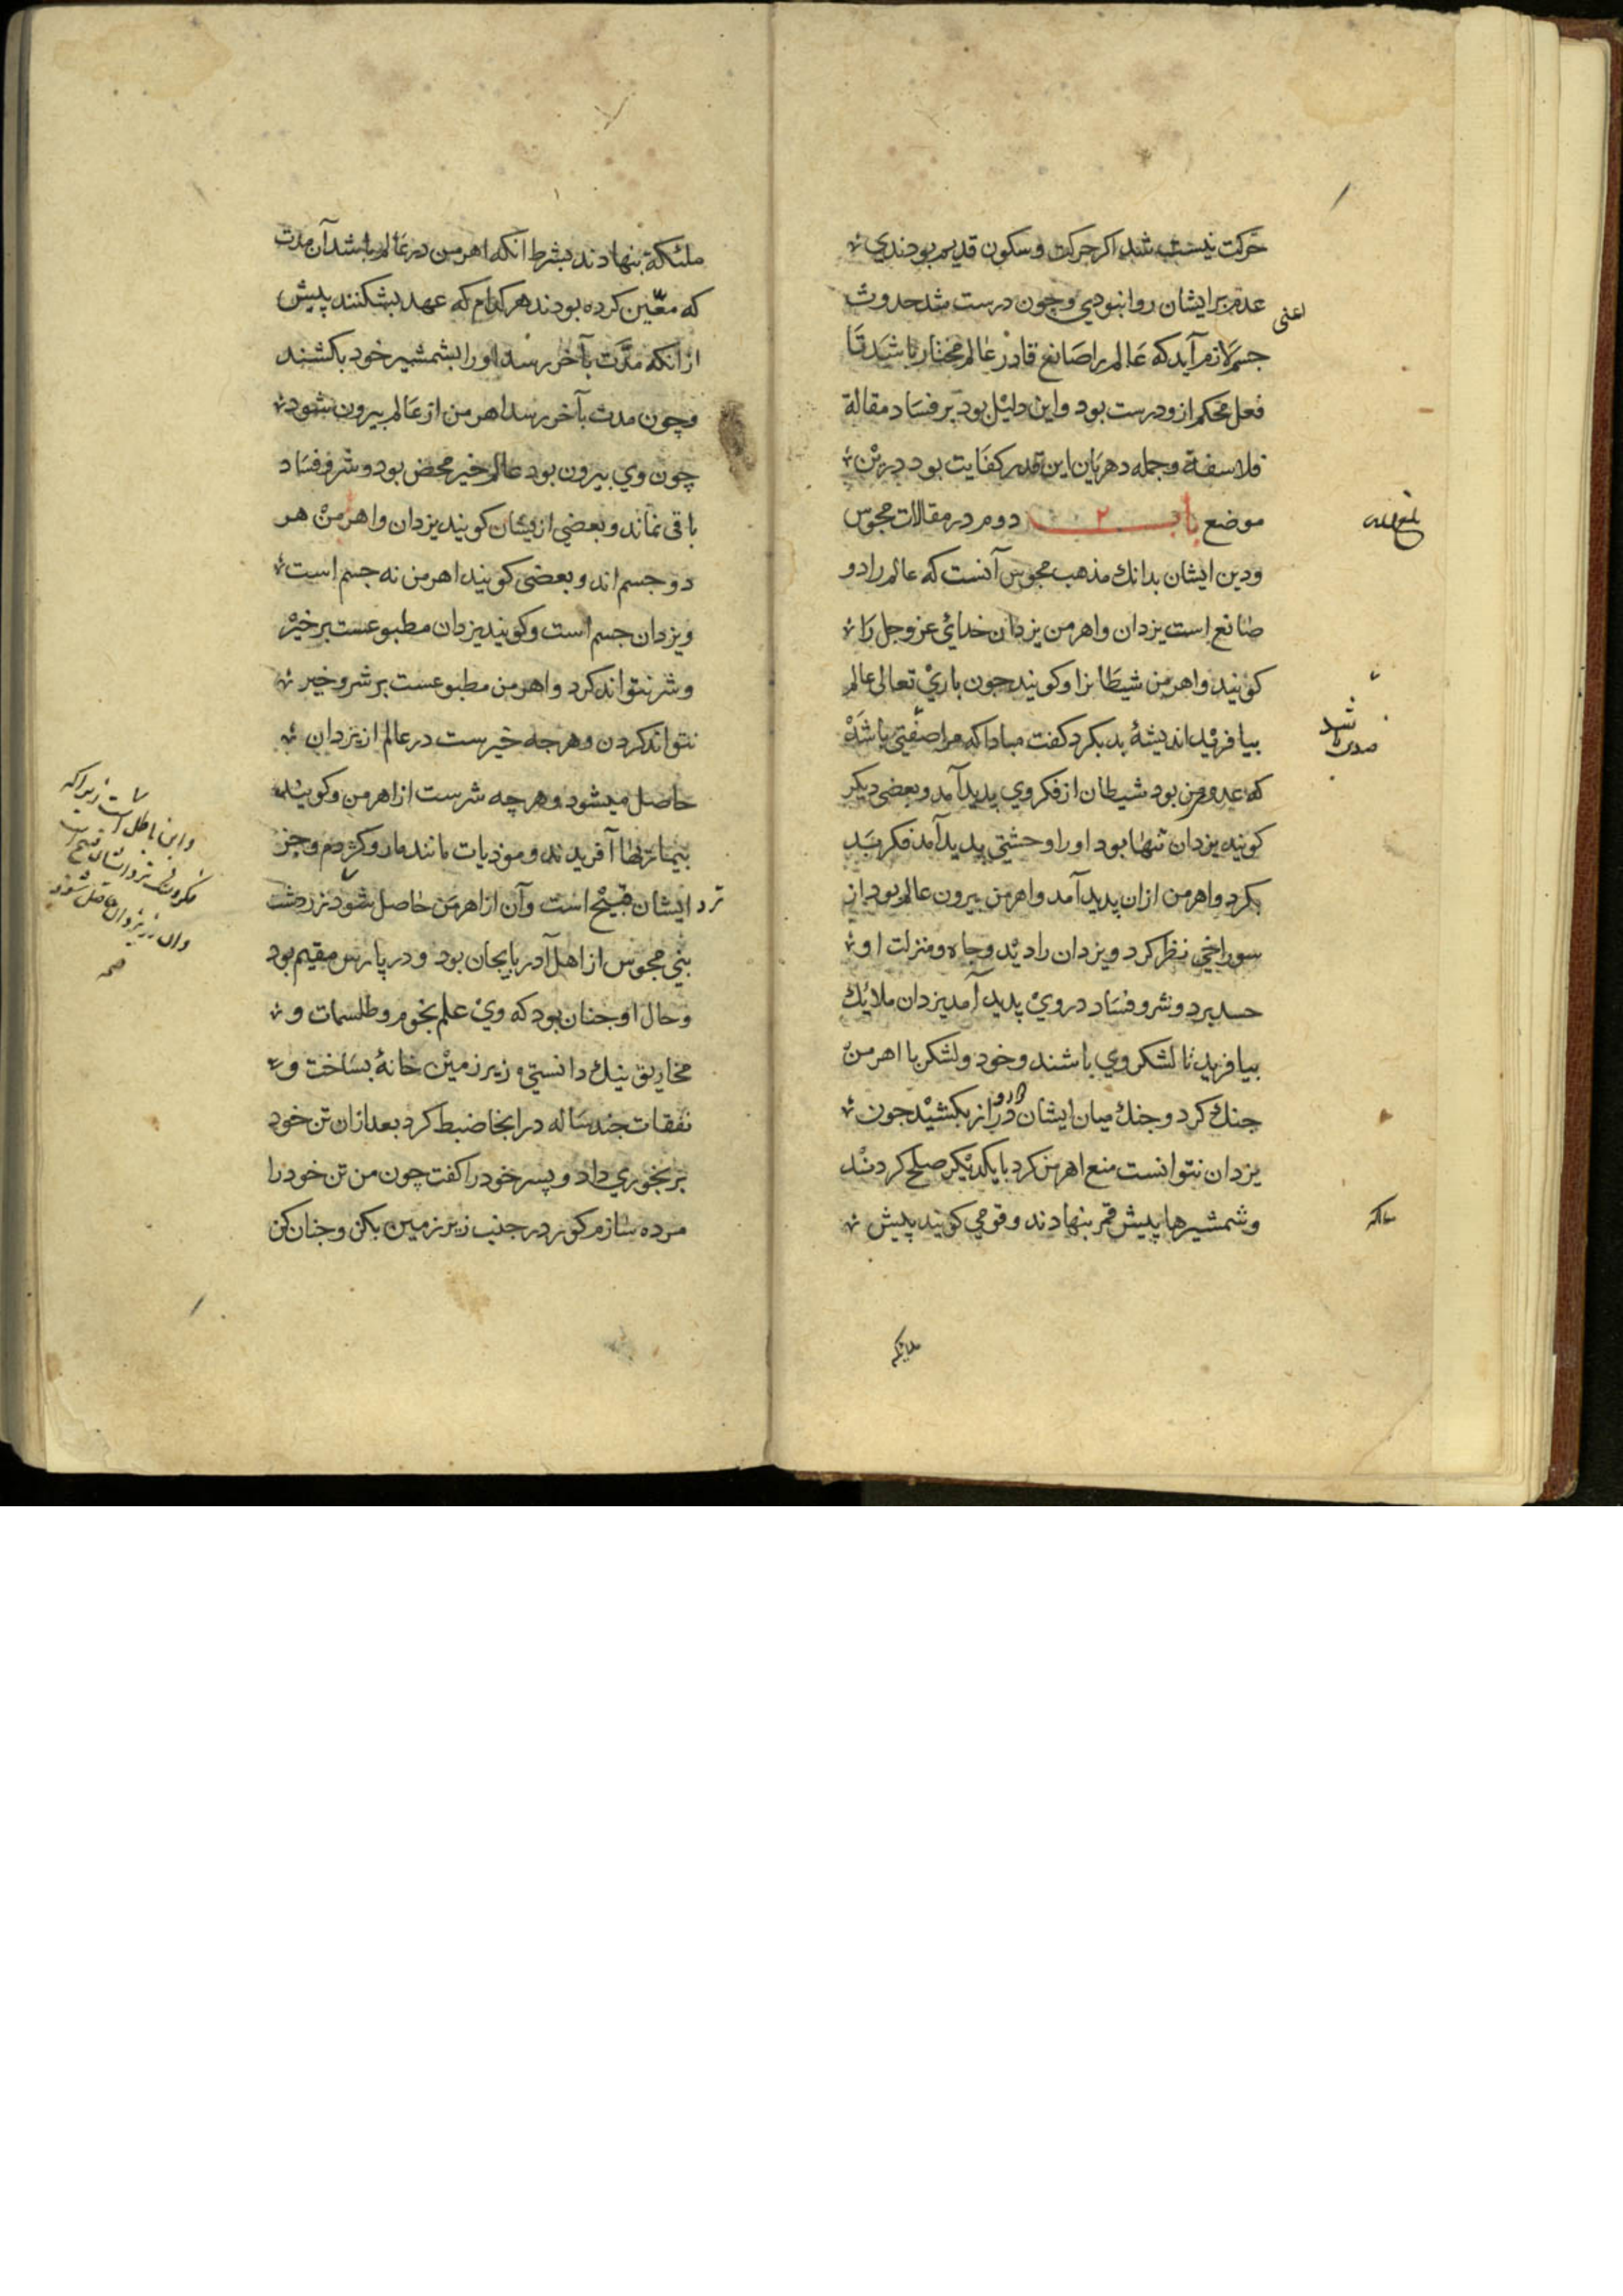 حرکت نیست شد اکر حرکت و سکون قدیم بودندی
عدم بر ایشان روا نبودی وچون درست شد حدوث
اعنی
جسم لازم آید که عالم را صانع قادر عالم مختار باشد تا
فعل محکم ازو درست بود واین دلیل بود بر فساد مقالة
فلاسفة وجمله دهریان این قدر کفایت بود درین
موضع باب ۲ دوم در مقالات مجوس
ودین ایشان بدانك مذهب مجوس آنست که عالم را دو
صانع است یزدان واهرمن یزدان خدایٔ عز وجل را
کویند واهرمن شیطانرا وکویند جون باریٔ تعالی عالم
بیافرید اندیشهٔ بد بکرد کفت مبادا که مرا ضدی باشد
شد
که عدو من بود شیطان از فکر وي پدید آمد وبعضی دیکر
کویند یزدان تنها بود اورا وحشتي پدید آمد فکر بد
بکرد واهرمن ازان پدید آمد واهرمن بیرون عالم بود از
سوراخي نظر کرد ویزدان را دید وجاه ومنزلت او
حسد برد وشر وفساد در ویٔ پدید آمد یزدان ملائك
بیافرید تا لشکر وي باشند وخود ولشکر با اهرمن
جنك کرد وجنك میان ایشان دراز بکشید جون
یزدان نتوانست منع اهرمن کرد با یکدیکر صلح کردند
وشمشیرها پیش قمر بنهادند وقومي کویند پیش
ملائکه
ملئکة بنهادند بشرط آنکه اهرمن در عالم باشد آن مدت
که معّین کرده بودند هر کدام که عهد بشکنند پیش
ازانکه مدّت بآخر رسد اورا بشمشیر خود بکشند
وچون مدت بآخر رسد اهرمن از عالم بیرون شود
چون وي بیرون بود عالم خیر محض بود وشر وفساد
باقی نماند وبعضي ازیشان کویند یزدان واهرمن هر
دو جسم اند وبعضی کویند اهرمن نه جسم است
ویزدان جسم است وکویند یزدان مطبوعست بر خیر
وشر نتواند کرد واهرمن مطبوعست بر شر وخیر
نتواند کردن وهرجه خیرست در عالم از یزدان
حاصل میشود وهرچه شرست از اهرمن وکویند
آفریدند وموذیات مانند مار وکژدم وجز
ایشان قبیح است وآن از اهرمن حاصل شود زردشت
بني مجوس از اهل آدربایجان بود ودر پارس مقیم بود
وحال او جنان بود که ویٔ علم نجوم وطلسمات و
مخاریق نیك دانستي و زیر زمین خانهٔ بساخت و
نفقات جند ساله درانجا ضبط کرد بعد ازان تن خود
برنجوري داد وپسر خود را کفت چون من تن خود را
مرده سازم کور در جنب زیر زمین بکن وجنان کن
واین باطل است زیراکه
فکر بد نزد ایشان قبیح است
وآن از یزدان حاصل شود
صح